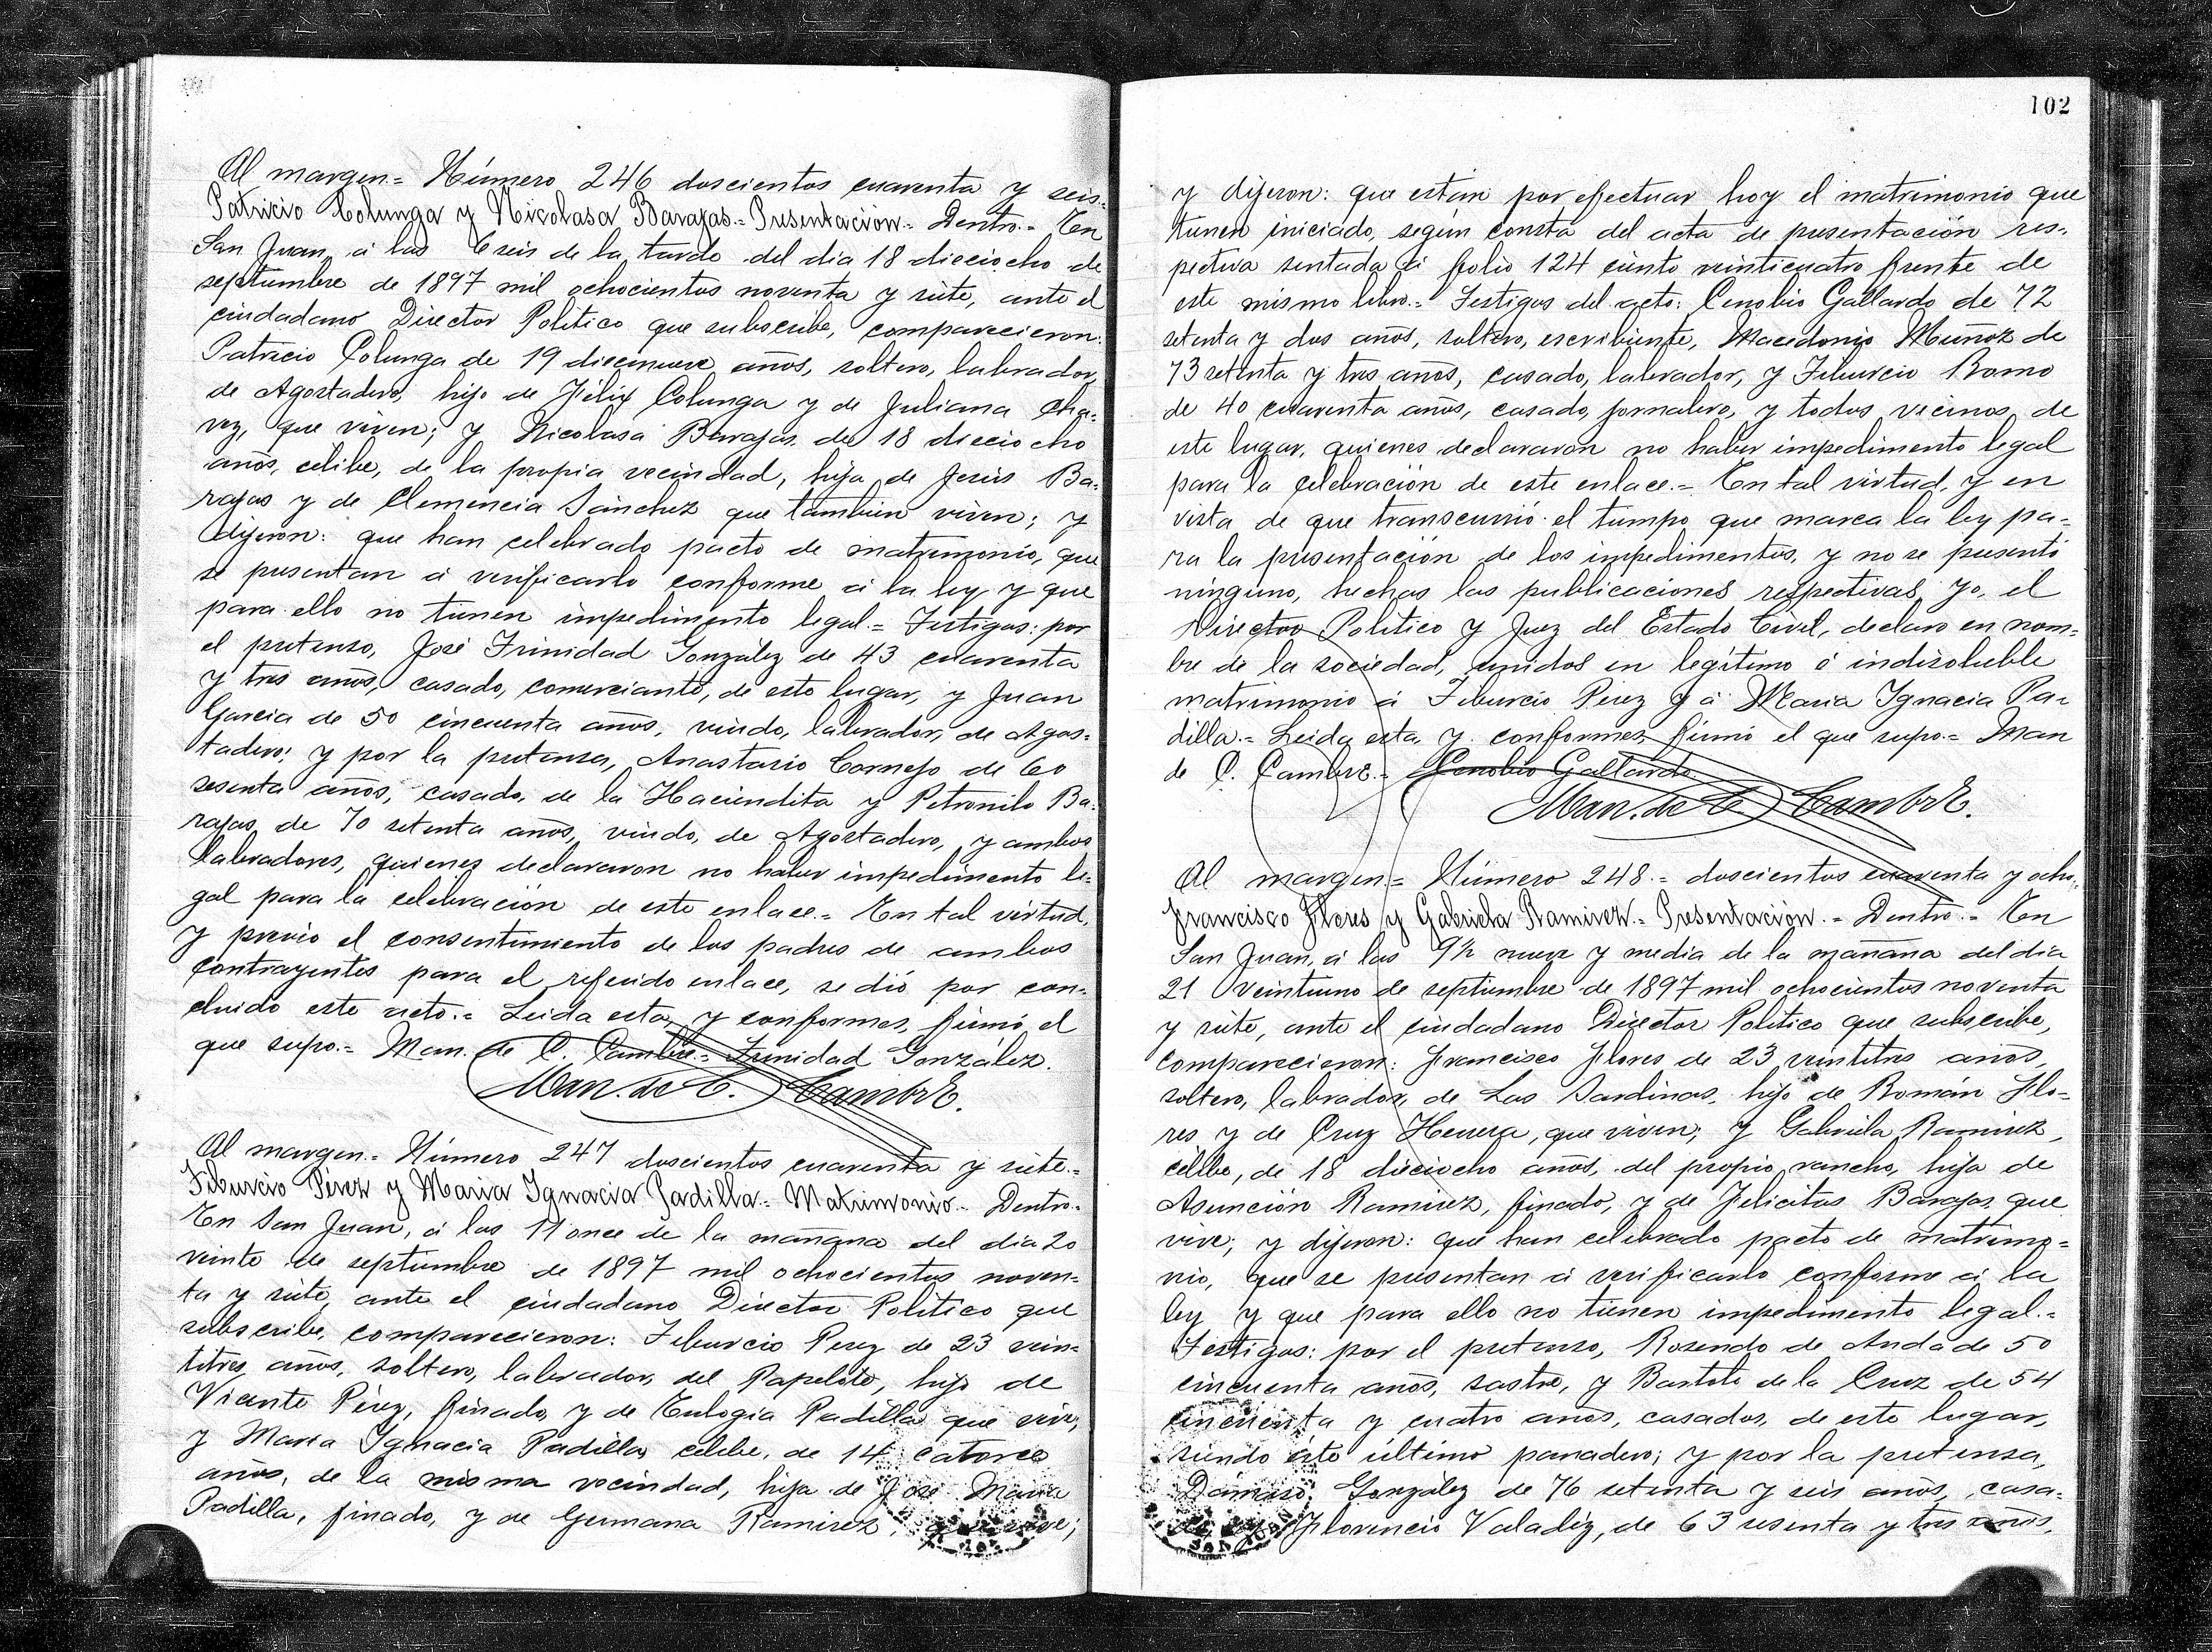 Al margen.= Número 246 doscientos cuarenta y seis.=
Patricio Colunga y Nicolasa Barajas.= Presentación.= Dentro.= En
San Juan, á las 6 seis de la tarde del dia 18 dieciocho de
septiembre de 1897 mil ochocientos noventa y siete, ante el
ciudadano Director Politico que subscribe, comparecieron:
Patricio Colunga de 19 diecinueve años, soltero, labrador,
de Agostadero, hijo de Félix Colunga y de Juliana Cha=
vez, que viven; y Nicolasa Barajas de 18 dieciocho
años, célibe, de la propia vecindad, hija de Jesús Ba=
rajas y de Clemencia Sánchez que tambien viven; y
dijeron: que han celebrado pacto de matrimonio, que
se presentan á verificarlo conforme á la ley y que
para ello no tienen impedimento legal.= Testigos: por
el pretenso, José Trinidad González de 43 cuarenta
y tres años, casado, comerciante, de este lugar, y Juan
Garcia de 50 cincuenta años, viudo, labrador, de Agos=
tadero; y por la pretensa, Anastasio Cornejo de 60
sesenta años, casado, de la Haciendita y Petronilo Ba=
rajas de 70 setenta años, viudo, de Agostadero, y ambos
labradores, quienes declararon no haber impedimento le=
gal para la celebración de este enlace.= En tal virtud,
y previo el consentimiento de los padres de ambos
contrayentes para el referido enlace, se dió por con=
cluido este acto.= Leida esta y conformes, firmó el
que supo.= Man. de C. Cambre.= Trinidad González.
Man. de C. Cambre.
Al margen.= Número 247 doscientos cuarenta y siete.=
Tiburcio Pérez y Maria Ignacia Padilla.= Matrimonio.= Dentro.=
En San Juan, á las 11 once de la mañana del dia 20
veinte de septiembre de 1897 mil ochocientos noven=
ta y siete, ante el ciudadano Director Politico que
subscribe, comparecieron: Tiburcio Perez de 23 vein=
titres años, soltero, labrador, del Papelote, hijo de
Vicente Pérez, finado, y de Eulogia Padilla que vive;
y Maria Ignacia Padilla, célibe, de 14 catorce
años, de la misma vecindad, hija de José Maria
Padilla, finado, y de Germana Ramirez, que vive;
102
y dijeron: que están por efectuar hoy el matrimonio que
tienen iniciado, según consta del acta de presentación res=
pectiva sentada á folio 124 ciento veinticuatro frente de
este mismo libro.= Testigos del acto: Cenobio Gallardo de 72
setenta y dos años, soltero, escribiente, Macedonio Muñoz de
73 setenta y tres años, casado, labrador, y Tiburcio Romo
de 40 cuarenta años, casado, jornalero, y todos vecinos de
este lugar, quienes declararon no haber impedimento legal
para la celebración de este enlace.= En tal virtud, y en
vista de que transcurrió el tiempo que marca la ley pa=
ra la presentación de los impedimentos, y no se presentó
ninguno, hechas las publicaciones respectivas, yo, el
Director Politico y Juez del Estado Civil, declaro en nom=
bre de la sociedad, unidos en legítimo é indisoluble
matrimonio á Tiburcio Pérez y á Maria Ignacia Pa=
dilla.= Leida esta, y conformes, firmó el que supo.= Man
de C. Cambre.= Cenobio Gallardo.
Man. de C. Cambre.
Al margen.= Número 248.= doscientos cuarenta y ocho.
Francisco Flores y Gabriela Ramirez.= Presentación.= Dentro.= En
San Juan, á las 9½ nueve y media de la mañana del dia
21 veintiuno de septiembre de 1897 mil ochocientos noventa
y siete, ante el ciudadano Director Politico que subscribe,
comparecieron: Francisco Flores de 23 veintitres años,
soltero, labrador, de Las Sardinas, hijo de Román Flo=
res y de Cruz Herrera, que viven; y Gabriela Ramirez,
célibe, de 18 dieciocho años, del propio rancho, hija de
Asunción Ramirez, finado, y de Felicitas Barajas, que
vive; y dijeron: que han celebrado pacto de matrimo=
nio, que se presentan á verificarlo conforme á la
ley y que para ello no tienen impedimento legal.=
Testigos: por el pretenso, Rosendo de Anda de 50
cincuenta años, sastre, y Bartolo de la Cruz de 54
cincuenta y cuatro años, casados, de este lugar,
siendo éste último panadero; y por la pretensa,
Dámaso González de 76 setenta y seis años, casa=
Florencio Valadéz, de 63 sesenta y tres años,